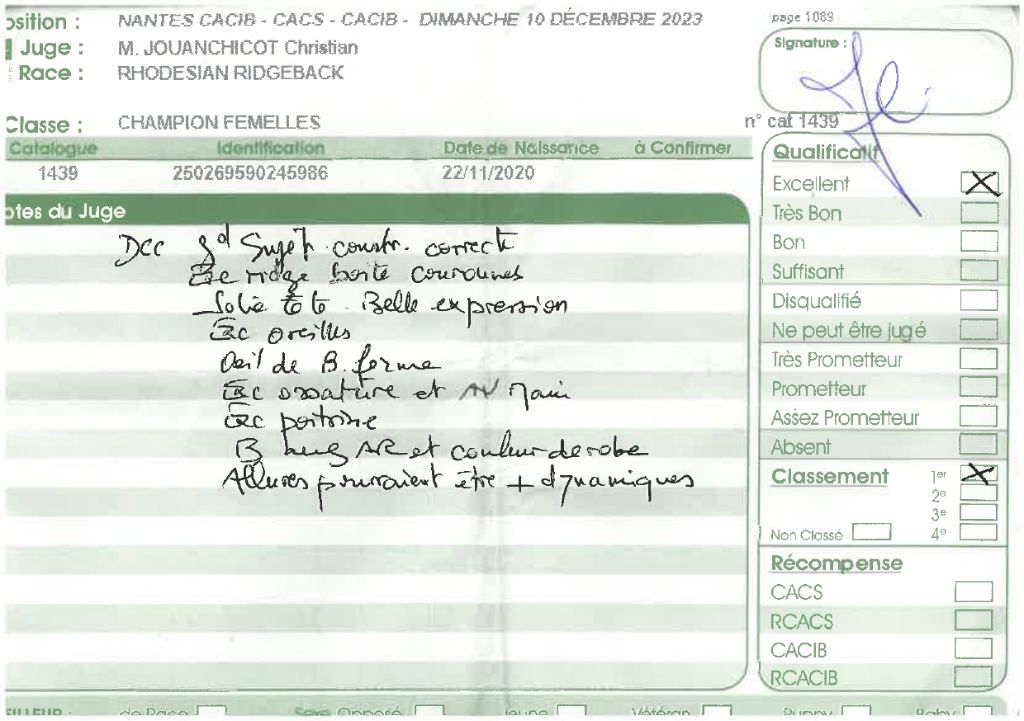 osition : NANTES CACIB - CACS - CACIB - DIMANCHE 10 DÉCEMBRE 2023
page 1089
Juge : M. JOUANCHICOT Christian
Signature :
Race : RHODESIAN RIDGEBACK
Classe : CHAMPION FEMELLES
n° cat 1439
Catalogue Identification Date de Naissance à Confirmer
1439 250269590245986 22/11/2020
Qualificatif
Excellent
Très Bon
Bon
Suffisant
Disqualifié
Ne peut être jugé
Très Prometteur
Prometteur
Assez Prometteur
Absent
Classement 1er
2e
3e
Non Classé 4e
Récompense
CACS
RCACS
CACIB
RCACIB
otes du Juge
Dcc gd Sujet constr. correcte
Exc ridge boite couronnes
Jolie tête Belle expression
Exc oreilles
Oeil de B. forme
Exc ossature et AV main
Exc poitrine
B AR et couleur de robe
Allures pourraient être + dynamiques
EILLEUR : de Race Sexe Opposé Jeune Vétéran Puppy Baby